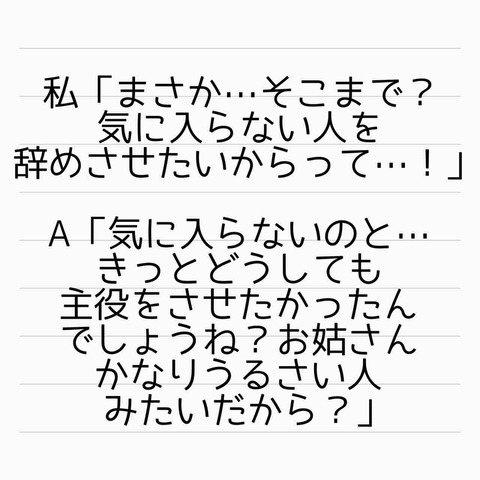 私「まさか…そこまで？
気に入らない人を
辞めさせたいからって…！」
A「気に入らないのと…
きっとどうしても
主役をさせたかったん
でしょうね？お姑さん
かなりうるさい人
みたいだから？」